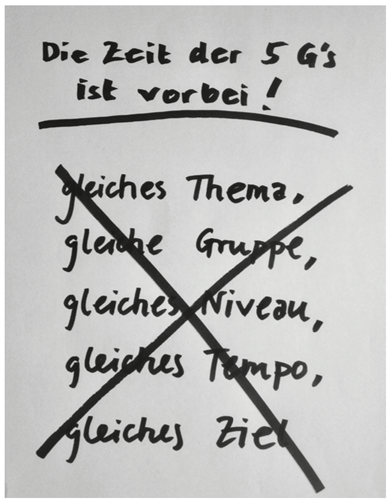 Die Zeit der 5 G's
ist vorbei!
gleiches Thema,
gleiche Gruppe,
gleiches Niveau,
gleiches Tempo,
gleiches Ziel